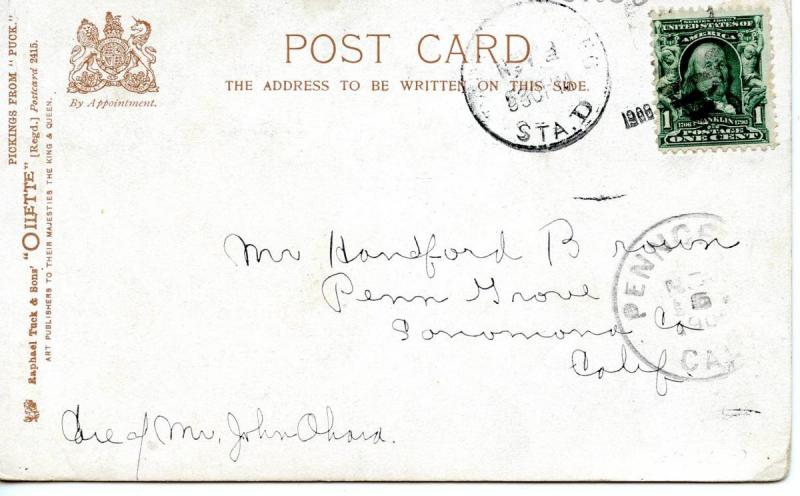 PICKINGS FROM "PUCK."
Raphael Tuck & Sons' "OILETTE" [Regd.] Postcard 2415.
ART PUBLISHERS TO THEIR MAJESTIES THE KING & QUEEN.
By Appointment.
POST CARD
THE ADDRESS TO BE WRITTEN ON THIS SIDE.
STA.D
1906
SERIES 1902
UNITED STATES OF
AMERICA
1706 FRANKLIN 1790
1 POSTAGE 1
ONE CENT
Mr Handford Brown
Penn Grove
Sonomona Co
Calif.
PENNGR
CAL
Care of Mr. John Ohara.